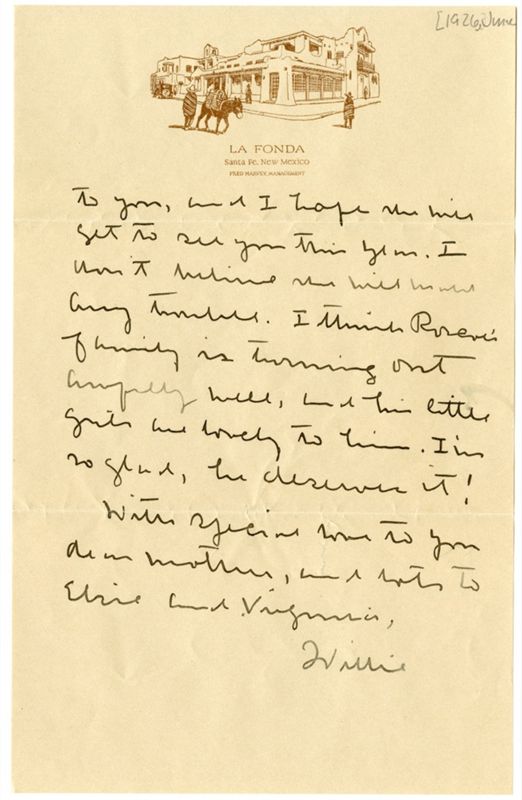 [1926, June
LA FONDA
Santa Fe, New Mexico
FRED HARVEY, MANAGEMENT
to you, and I hope she will
get to see you this year. I
don't believe she will make
any trouble. I think Roscoe's
family is turning out
awfully well, and his little
girls are lovely to him. I'm
so glad, he deserves it!
With special love to you
dear mother, and lots to
Elsie and Virginia,
Willie